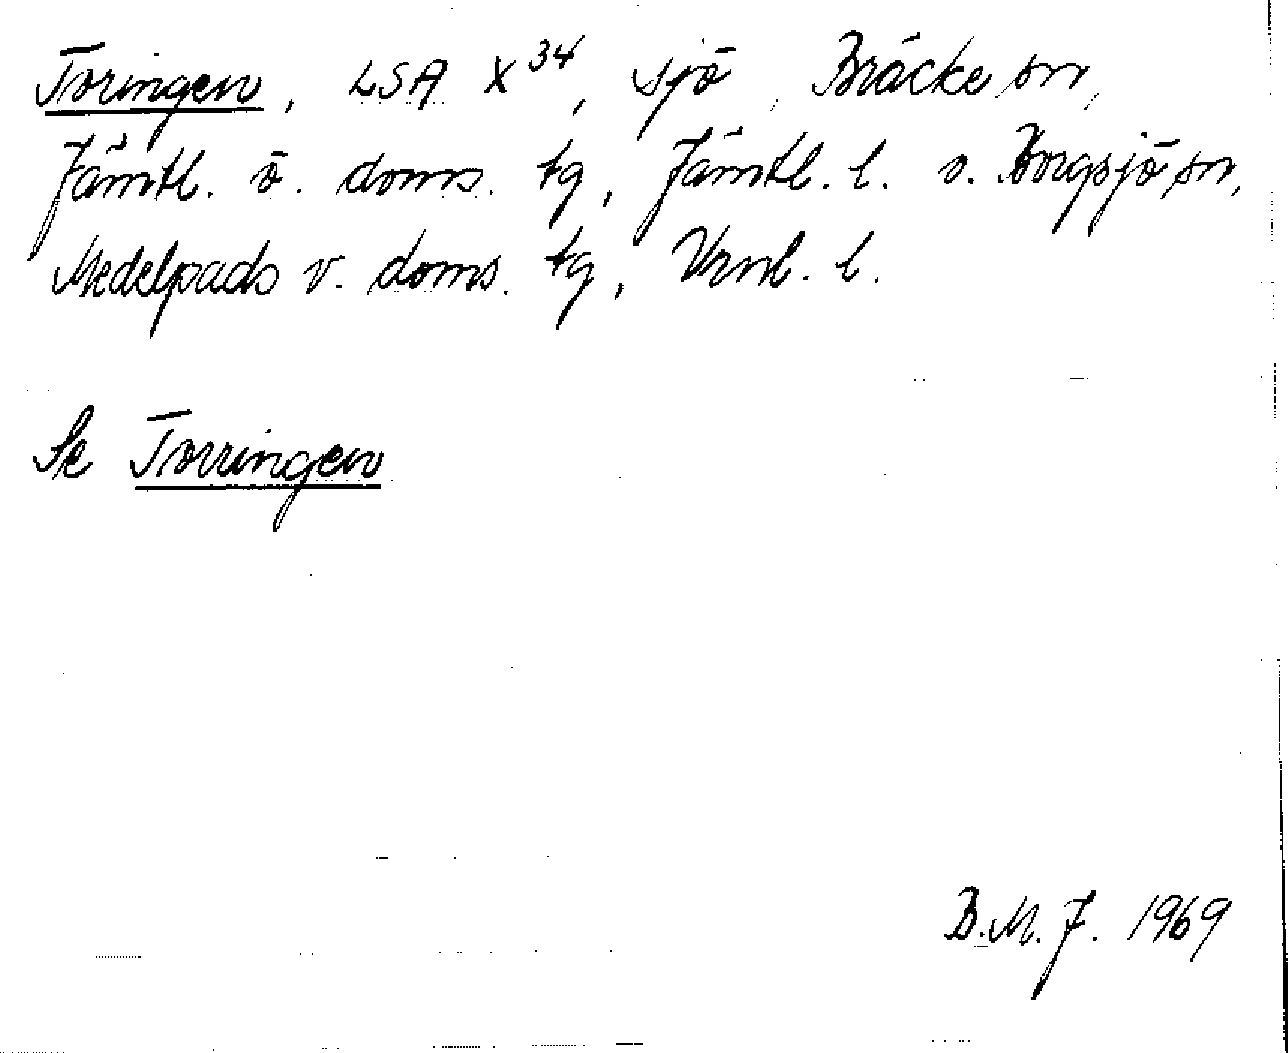 Toringen, LSA X 34, sjö, Bräcke sn,
Jämtl. ö. doms. tg, Jämtl. l. o. Borgsjö sn,
Medelpads v. doms. tg, Vrnl. l.
Se Torringen
B.M.J. 1969